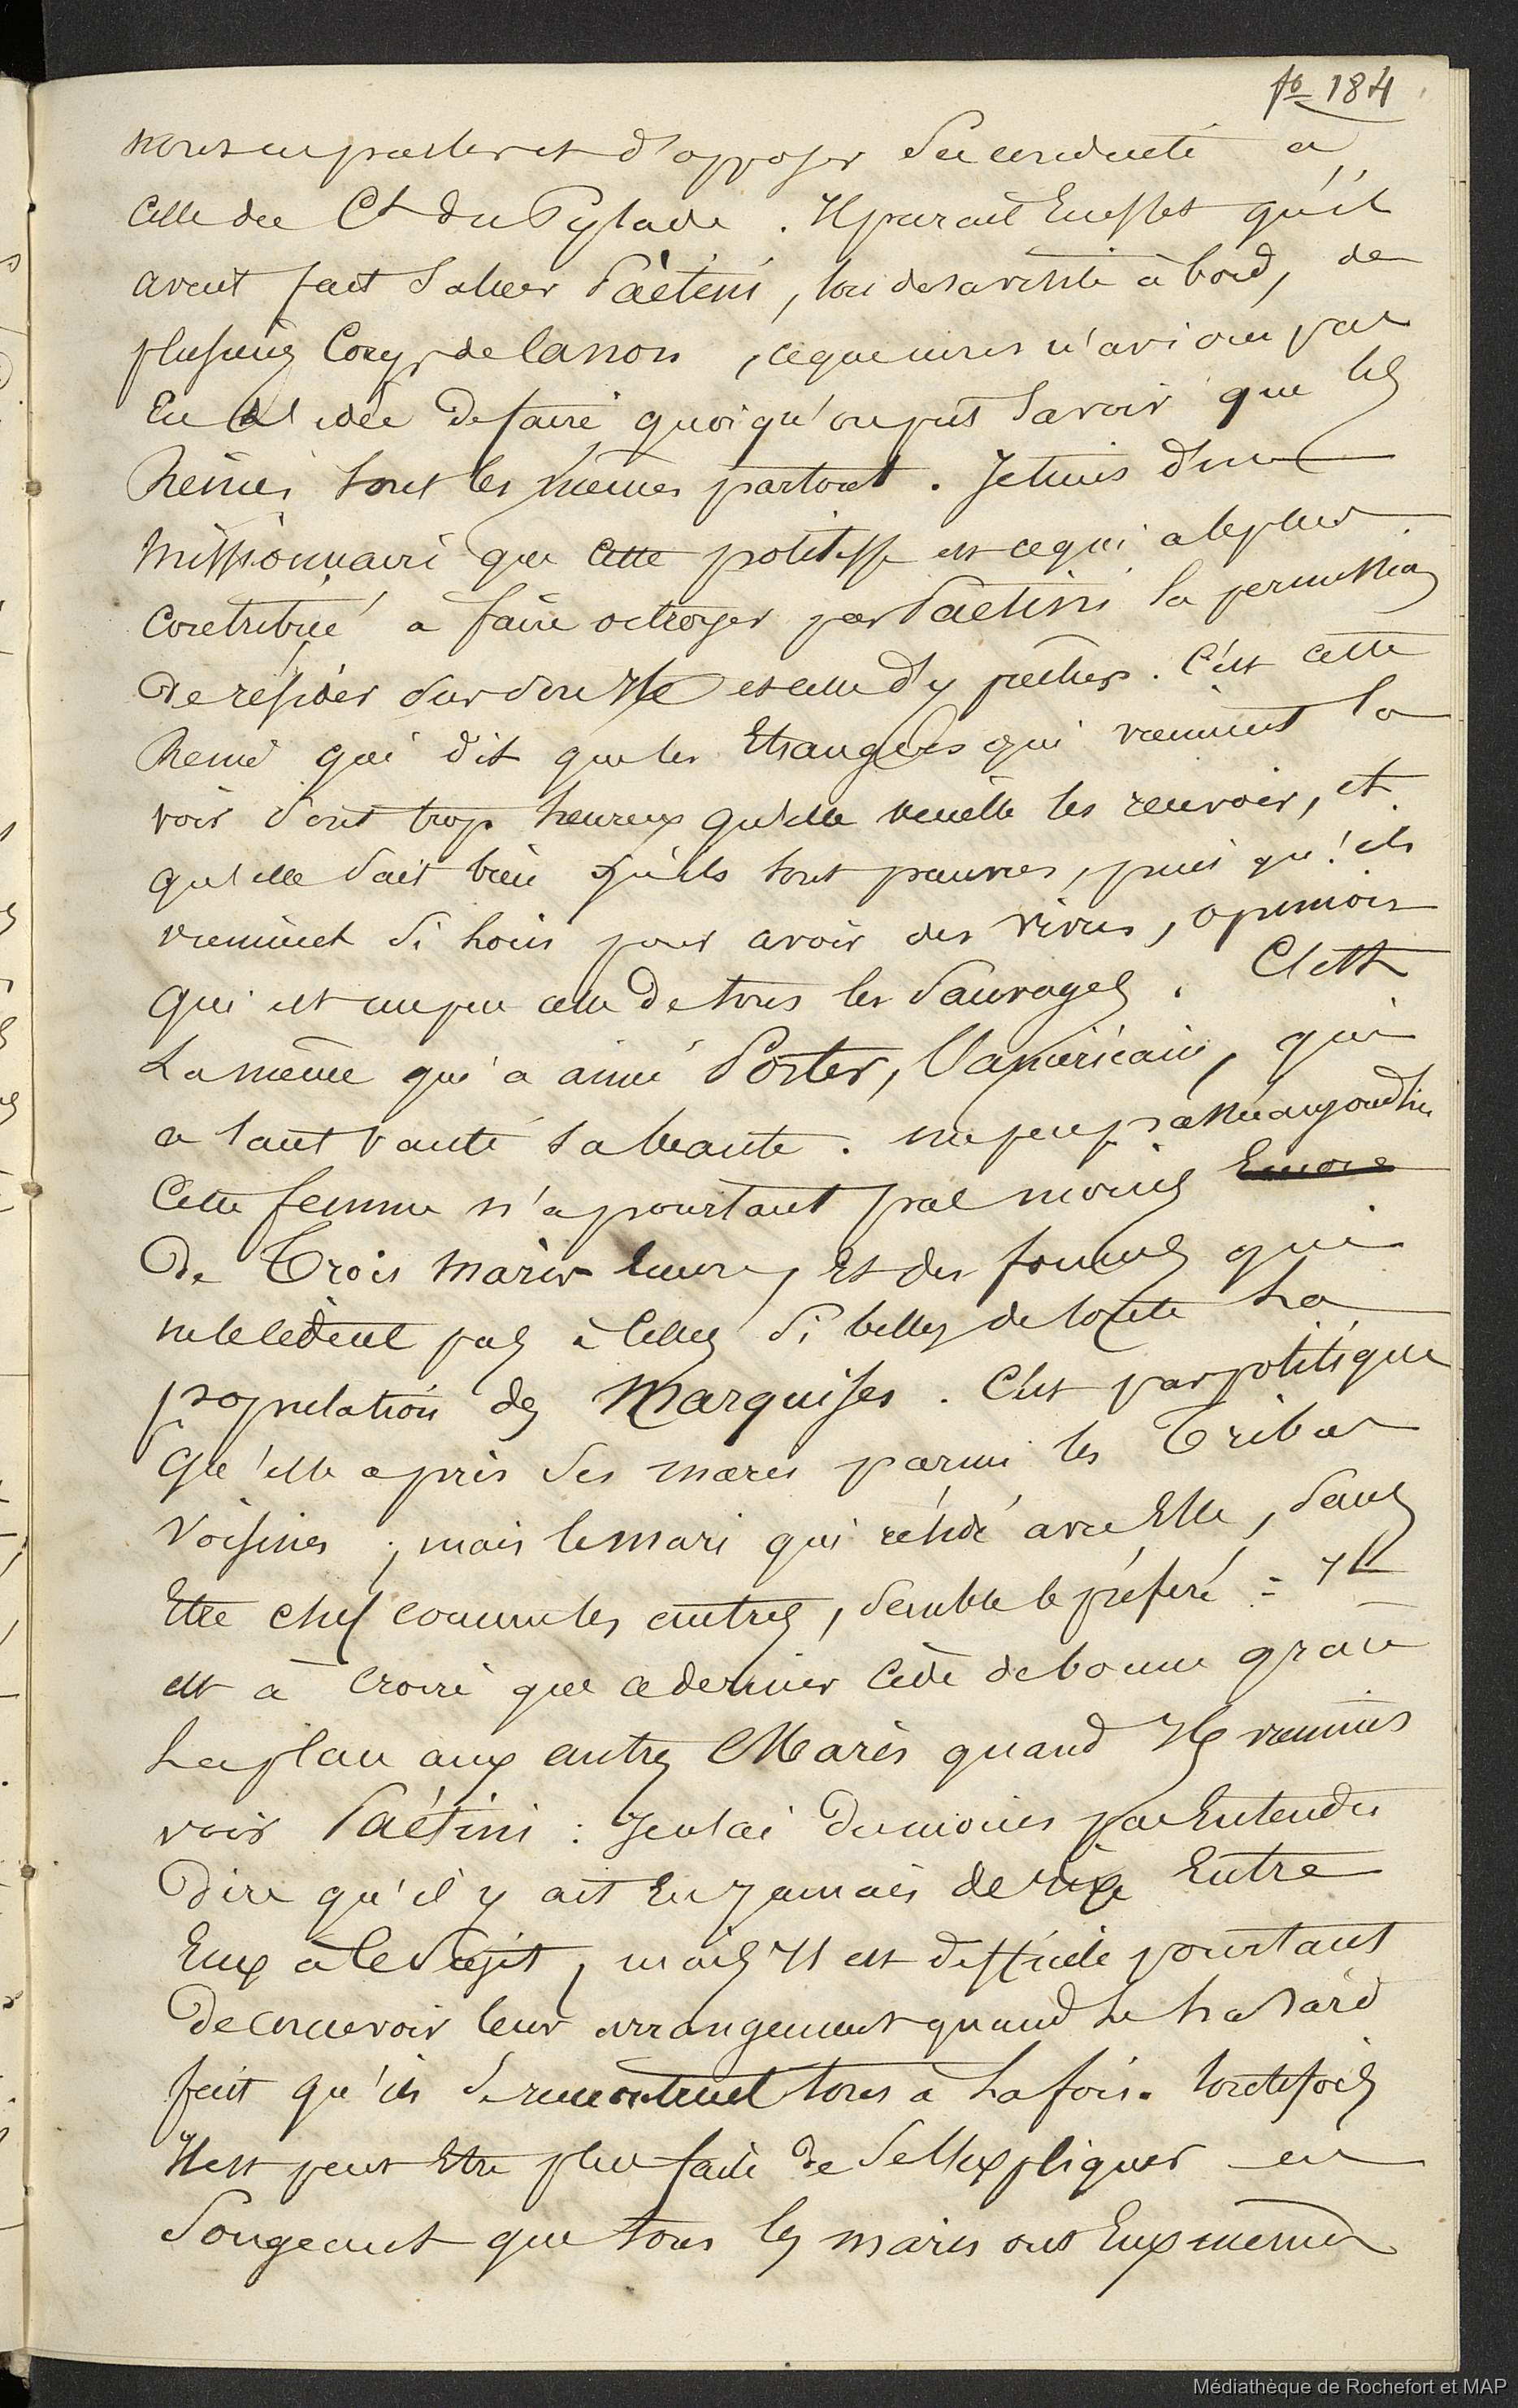 fo 184
nous en parler et d'opposer sa conduite à
celle du Ct du Pylade. Il parait en effet qu'il
avait fait saluer Paëtini, lors de sa visite à bord, de
plusieurs coups de canon, ce que nous n'avions pas
eu idée de faire quoiqu'on put savoir que les
Reines sont les mêmes partout. Je tiens d'un
Missionnaire que cette politesse est ce qui a le plus
contribué à faire octroyer par Paëtini la permission
de résider sur son Ile et celle d'y pêcher. C'est cette
Reine qui dit que les Etrangers qui viennent la
voir sont trop heureux qu'elle veuille les recevoir, et
qu'elle sait bien qu'ils sont pauvres, puis qu'ils
viennent si loin pour avoir des vivres, opinion
qui est un peu celle de tous les Sauvages. C'est
la même qui a aimé Porter, l'américain, qui
a tant vanté sa beauté. un peu passée aujourd'hui
Cette femme n'a pourtant pas moins Encore
de Trois maris encore, et des formes qui
ne le cèdent pas à celles si belles de toute la
population des Marquises. C'est par politique
qu'elle a pris ses maris parmi les Tribus
Voisines; mais le mari qui réside avec Elle, sans
Etre chef comme les autres, semble le préféré = Il
est à croire que ce dernier cède de bonne grace
la place aux autres Maris quand Ils viennent
voir Paétini : Je n'ai du moins pas Entendu
Dire qu'il y ait Eu jamais de rixe Entre
Eux à ce sujet, mais Il est difficile pourtant
de concevoir leur arrangement quand le hasard
fait qu'ils se rencontrent tous à la fois. toutefois
Il est peut Etre plus facile de se l'expliquer en
Songeant que tous les maris ont Eux mêmes
Médiathèque de Rochefort et MAP